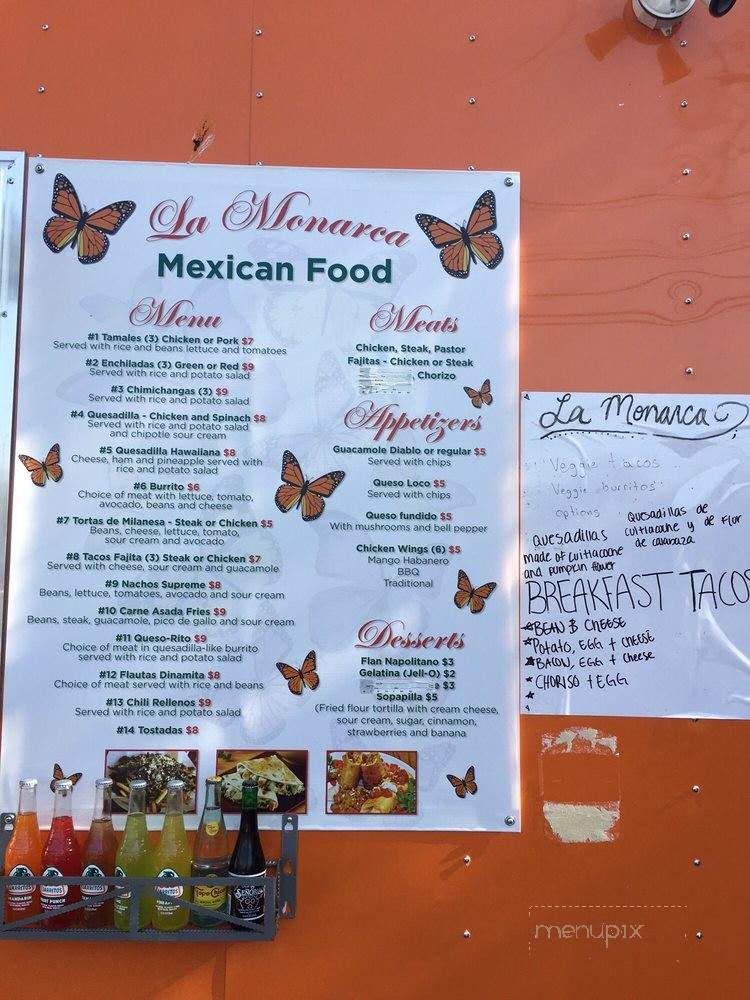 La Monarca
Mexican Food
Menu
#1 Tamales (3) Chicken or Pork $7
Served with rice and beans lettuce and tomatoes
#2 Enchiladas (3) Green or Red $9
Served with rice and potato salad
#3 Chimichangas (3) $9
Served with rice and potato salad
#4 Quesadilla - Chicken and Spinach $8
Served with rice and potato salad
and chipotle sour cream
#5 Quesadilla Hawaiiana $8
Cheese, ham and pineapple served with
rice and potato salad
#6 Burrito $6
Choice of meat with lettuce, tomato,
avocado, beans and cheese
#7 Tortas de Milanesa - Steak or Chicken $5
Beans, cheese, lettuce, tomato,
sour cream and avocado
#8 Tacos Fajita (3) Steak or Chicken $7
Served with cheese, sour cream and guacamole
#9 Nachos Supreme $8
Beans, lettuce, tomatoes, avocado and sour cream
#10 Carne Asada Fries $9
Beans, steak, guacamole, pico de gallo and sour cream
#11 Queso-Rito $9
Choice of meat in quesadilla-like burrito
served with rice and potato salad
#12 Flautas Dinamita $8
Choice of meat served with rice and beans
#13 Chili Rellenos $9
Served with rice and potato salad
#14 Tostadas $8
Meats
Chicken, Steak, Pastor
Fajitas - Chicken or Steak
, Chorizo
Appetizers
Guacamole Diablo or regular $5
Served with chips
Queso Loco $5
Served with chips
Queso fundido $5
With mushrooms and bell pepper
Chicken Wings (6) $5
Mango Habanero
BBQ
Traditional
Desserts
Flan Napolitano $3
Gelatina (Jell-O) $2
e $3
Sopapilla $5
(Fried flour tortilla with cream cheese,
sour cream, sugar, cinnamon,
strawberries and banana
La Monarca
Veggie tacos
Veggie burritos
options
Quesadillas
made of cuitlacoche
and pumpkin flower
Quesadillas de
cuitlacoche y de flor
de calabaza
BREAKFAST TACOS
BEAN & CHEESE
POTATO, EGG + CHEESE
BACON, EGG + Cheese
CHORISO + EGG
MANDARIN
JARRITOS
FRUIT PUNCH
JARRITOS
JARRITOS
JARRITOS
Topo Chico
SEÑORIAL
menupix